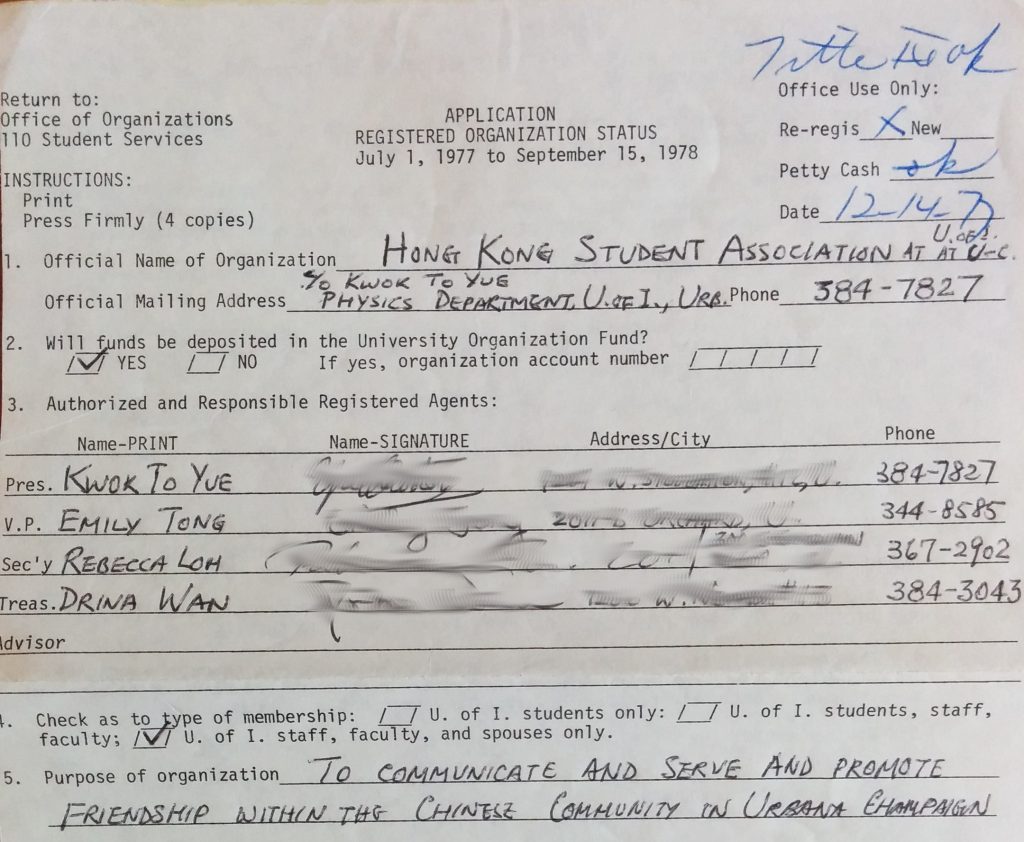 Title IX ok
Return to:
Office of Organizations
110 Student Services
APPLICATION
REGISTERED ORGANIZATION STATUS
July 1, 1977 to September 15, 1978
Office Use Only:
Re-regis X New
Petty Cash ok
Date 12-14-77
INSTRUCTIONS:
Print
Press Firmly (4 copies)
1. Official Name of Organization HONG KONG STUDENT ASSOCIATION AT U. OF I. AT U-C.
Official Mailing Address c/o KWOK TO YUE
PHYSICS DEPARTMENT, U. OF I., URB. Phone 384-7827
2. Will funds be deposited in the University Organization Fund?
/✓/ YES / / NO If yes, organization account number / / / / / /
3. Authorized and Responsible Registered Agents:
Name-PRINT Name-SIGNATURE Address/City Phone
Pres. KWOK TO YUE 384-7827
V.P. EMILY TONG 344-8585
Sec'y REBECCA LOH 367-2902
Treas. DRINA WAN 384-3043
Advisor
4. Check as to type of membership: / / U. of I. students only: / / U. of I. students, staff,
faculty; /✓/ U. of I. staff, faculty, and spouses only.
5. Purpose of organization TO COMMUNICATE AND SERVE AND PROMOTE
FRIENDSHIP WITHIN THE CHINESE COMMUNITY IN URBANA CHAMPAIGN